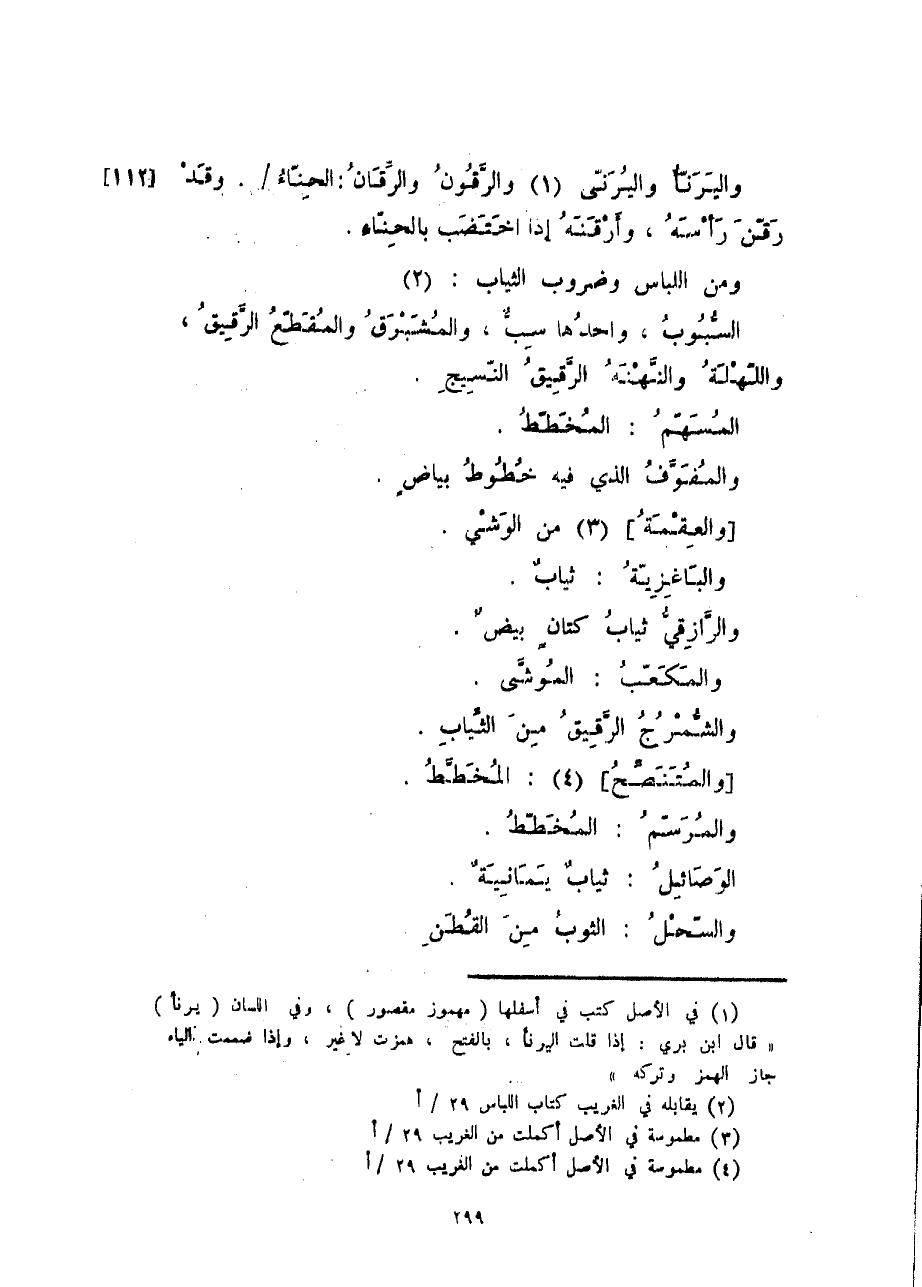 واليَرَنَّأ واليُرَنَّى (١) والرَّقُونُ والرِّقَانُ : الحِنَّاءُ / . وقَدْ [١١٢]
رَقَّنَ رَأْسَهُ ، وأَرْقَنَهُ إذا اخْتَضَب بالحِنَّاءِ .
ومن اللباس وضروب الثياب : (٢)
السُّبُوبُ ، واحدُها سِبٌّ ، والمُشَبْرَقُ والمُقَطَّعُ الرَّقِيقُ ،
واللَّهْلَهُ والنَّهْنَهُ الرَّقِيقُ النَّسِيجِ .
المُسَهَّمُ : المُخَطَّطُ .
والمُفَوَّفُ الذي فيه خُطُوطُ بياضٍ .
[والعِقْمَةُ] (٣) من الوَشْيِ .
والبَاغِزِيَّةُ : ثيابٌ .
والرَّازِقِيُّ ثيابُ كتانٍ بيضٌ .
والمَكَعَّبُ : المُوشَّى .
والشُّمْرُجُ الرَّقِيقُ مِنَ الثِّيابِ .
[والمُتَنَصَّحُ] (٤) : المُخَطَّطُ .
والمُرَسَّمُ : المُخَطَّطُ .
الوَصَائِلُ : ثيابٌ يَمَانِيَةٌ .
والسَّحْلُ : الثوبُ مِنَ القُطْنِ
(١) في الأصل كتب في أسفلها ( مهموز مقصور ) ، وفي اللسان ( يرنأ )
« قال ابن بري : إذا قلت اليرنأ ، بالفتح ، همزت لا غير ، وإذا ضممت الياء
جاز الهمز وتركه »
(٢) يقابله في الغريب كتاب اللباس ٢٩ / أ
(٣) مطموسة في الأصل أكملت من الغريب ٢٩ / أ
(٤) مطموسة في الأصل أكملت من الغريب ٢٩ / أ
٢٩٩